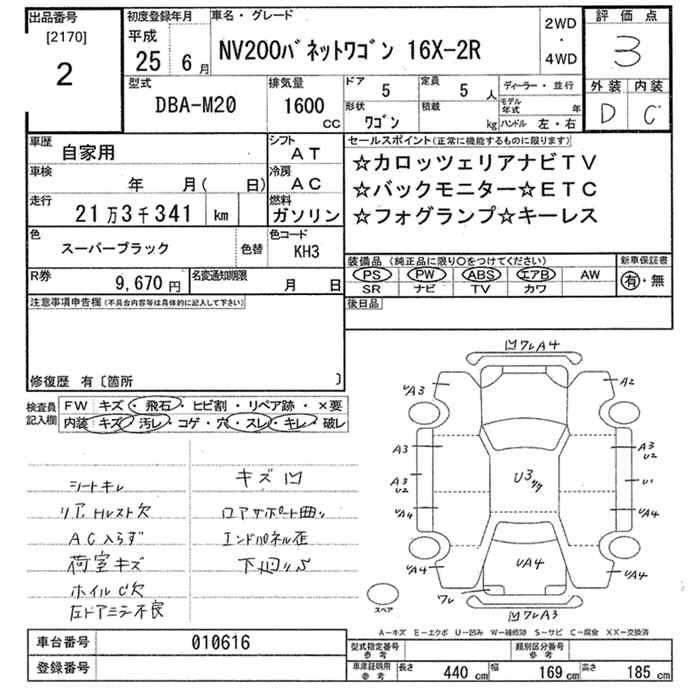 出品番号
[2170]
2
初度登録年月
平成
25 6月
車名・グレード
NV200バネットワゴン 16X-2R
2WD
・
4WD
評価点
3
外装 内装
D C
型式
DBA-M20
排気量
1600
CC
ドア
5
定員
5 人
形状
ワゴン
積載
kg
ディーラー・並行
モデル年式
年
ハンドル 左・右
車歴
自家用
シフト
AT
車検
年 月( 日)
冷房
AC
走行
21万3千341 km
燃料
ガソリン
色
スーパーブラック
色替
色コード
KH3
R券
9,670円
名変通知期限
月 日
セールスポイント(正常に機能するものに限ります)
☆カロッツェリアナビTV
☆バックモニター☆ETC
☆フォグランプ☆キーレス
装備品(純正品に限り○をつけてください)
新車保証書
PS PW ABS エアB AW
SR ナビ TV カワ
有・無
後日品
注意事項申告欄(不具合内容等は具体的に記入して下さい)
修復歴 有〔箇所 〕
検査員
記入欄
FW キズ・飛石・ヒビ割・リペア跡・×要
内装 キズ・汚レ・コゲ・穴・スレ・キレ・破レ
シートキレ
リアHレスト欠
AC入らず
荷室キズ
ホイルC欠
左ドアミラー不良
キズ凹
ロアサポート曲り
エンドパネル歪
下廻りS
凹ワレA4
UA3
A2
A3
A3
U2
A3
U2
U1
UA4
UA4
U3
UA4
UA4
UA4
ワレ
凹ワレA3
スペア
A-キズ E-エクボ U-凹み W-補修跡 S-サビ C-腐食 XX-交換済
車台番号
010616
登録番号
型式指定番号
参考
類別区分番号
参考
車庫証明用
参考
長さ
440 cm
幅
169 cm
高さ
185 cm